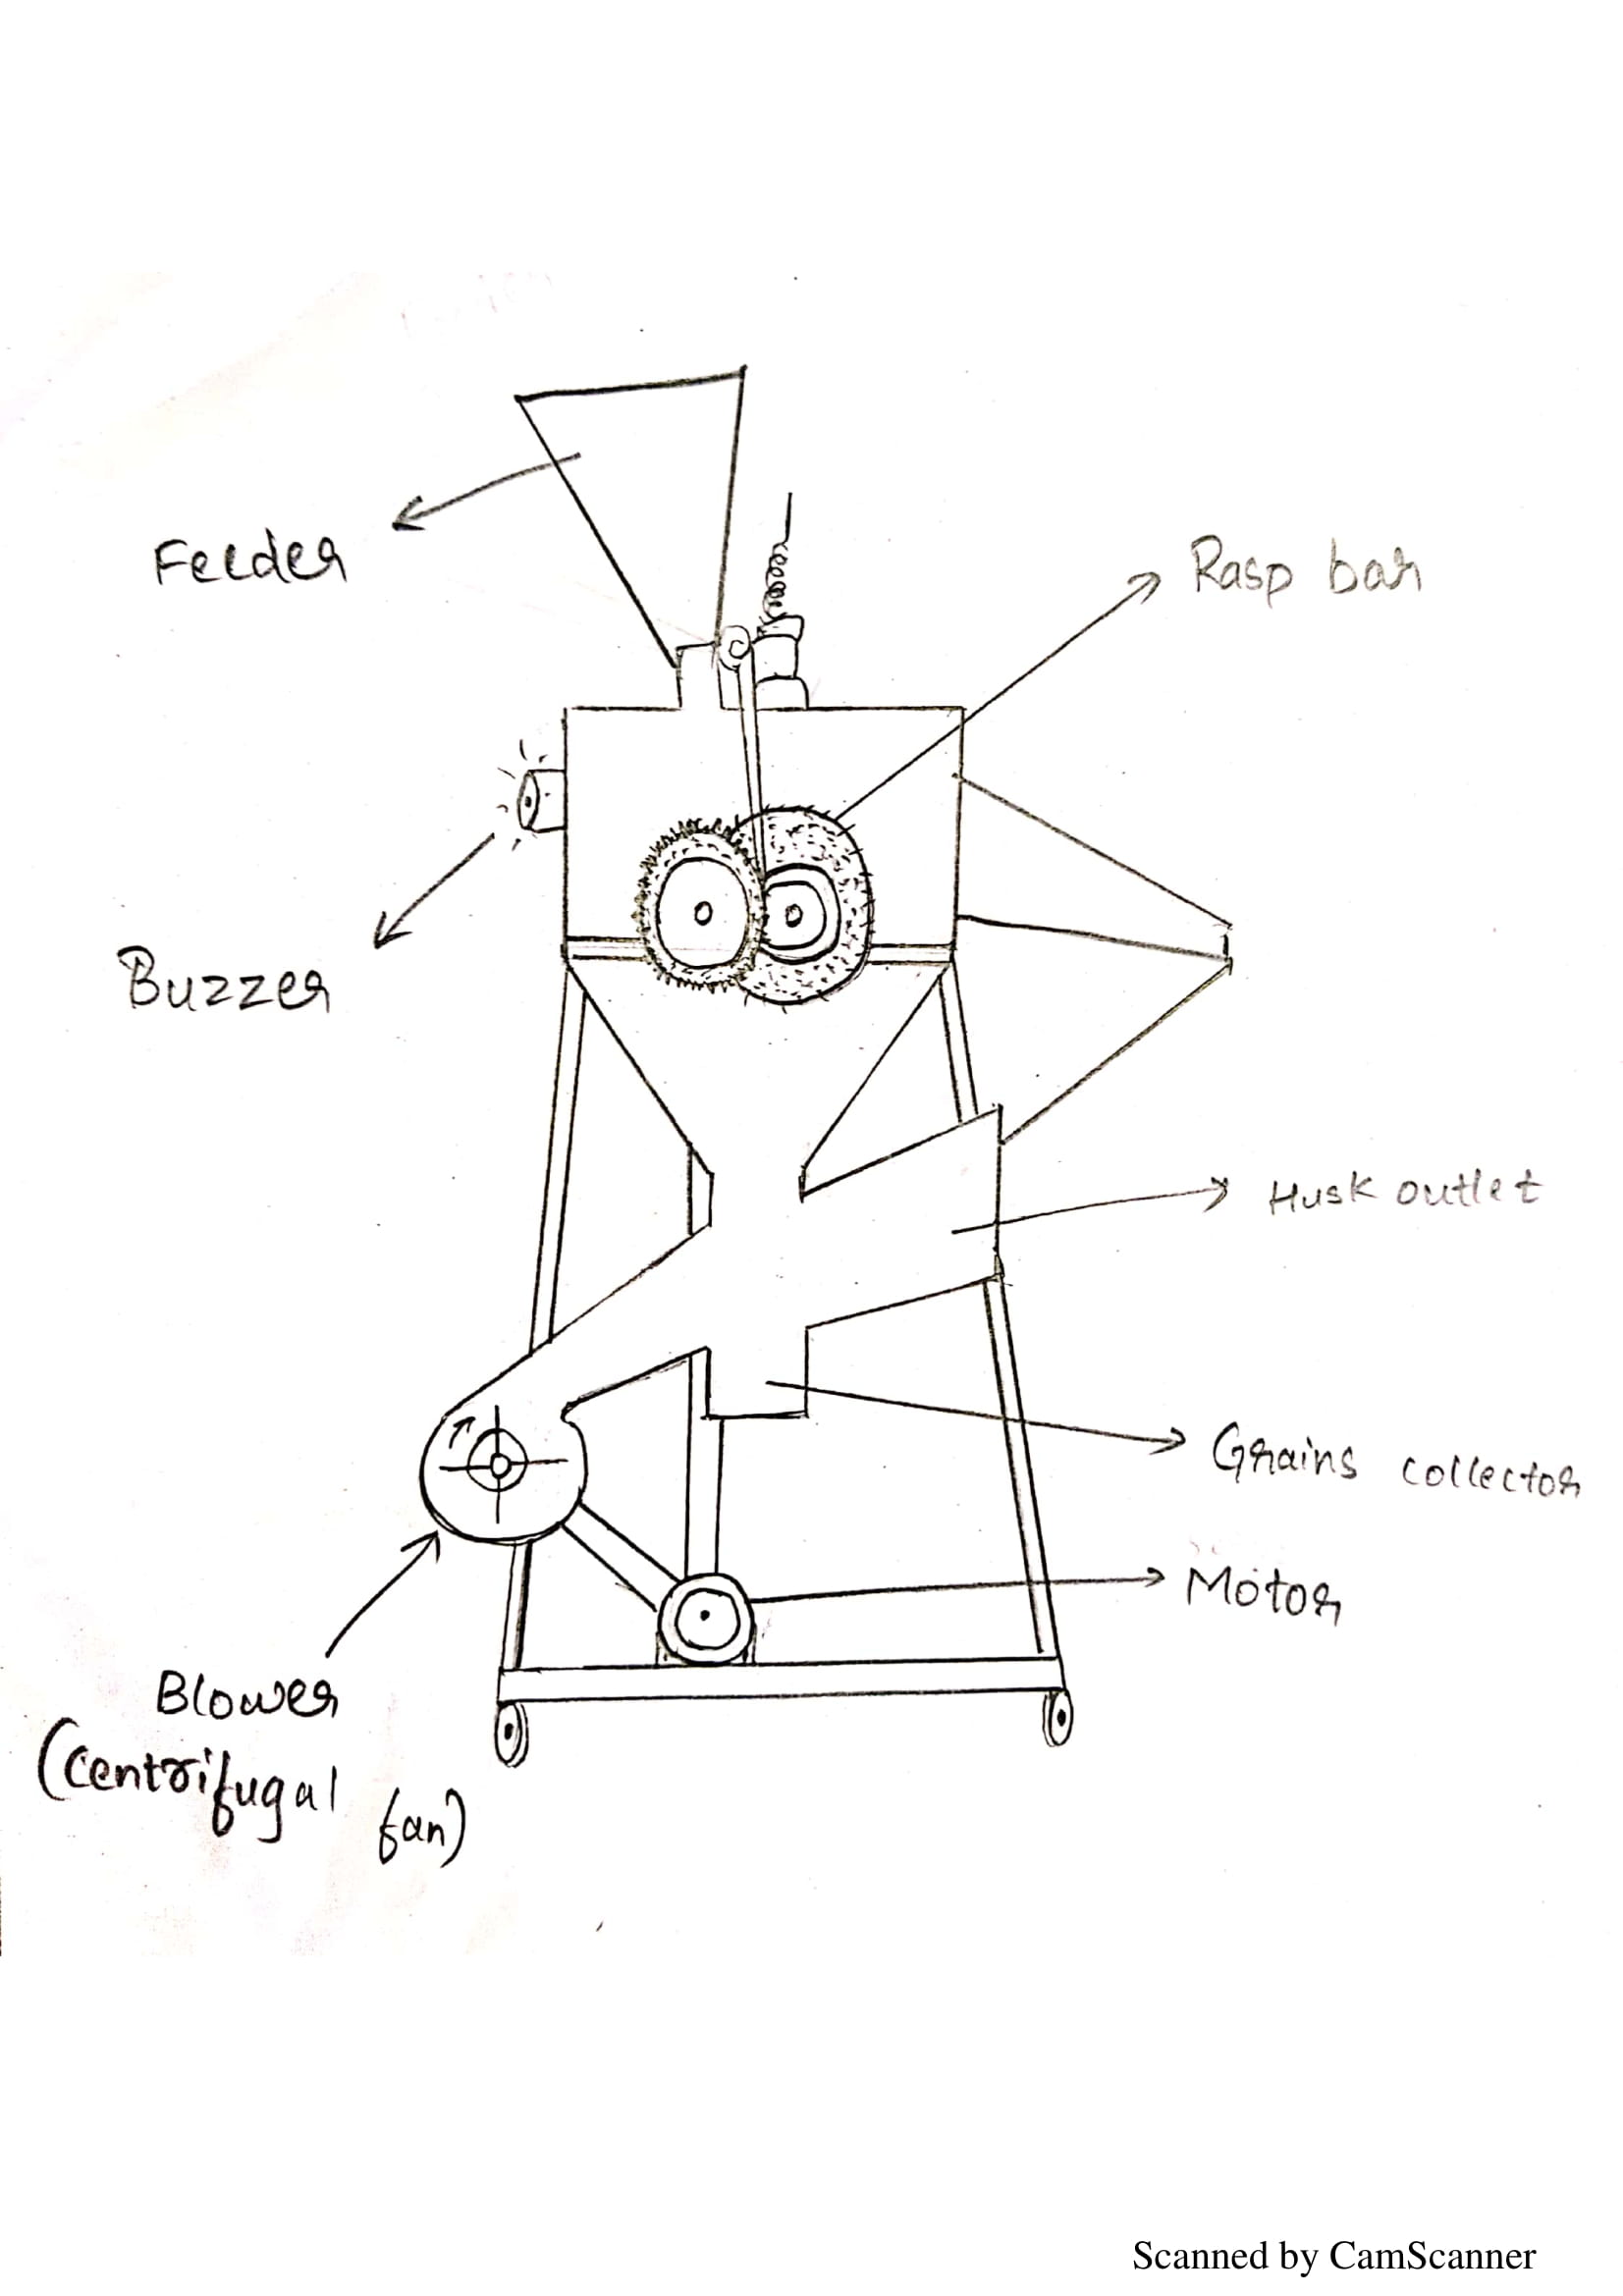 Feeder
Rasp bar
Buzzer
Husk outlet
Grains collector
Motor
Blower
(Centrifugal fan)
Scanned by CamScanner